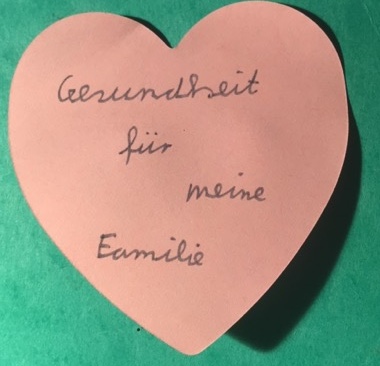 Gesundheit
für
meine
Familie